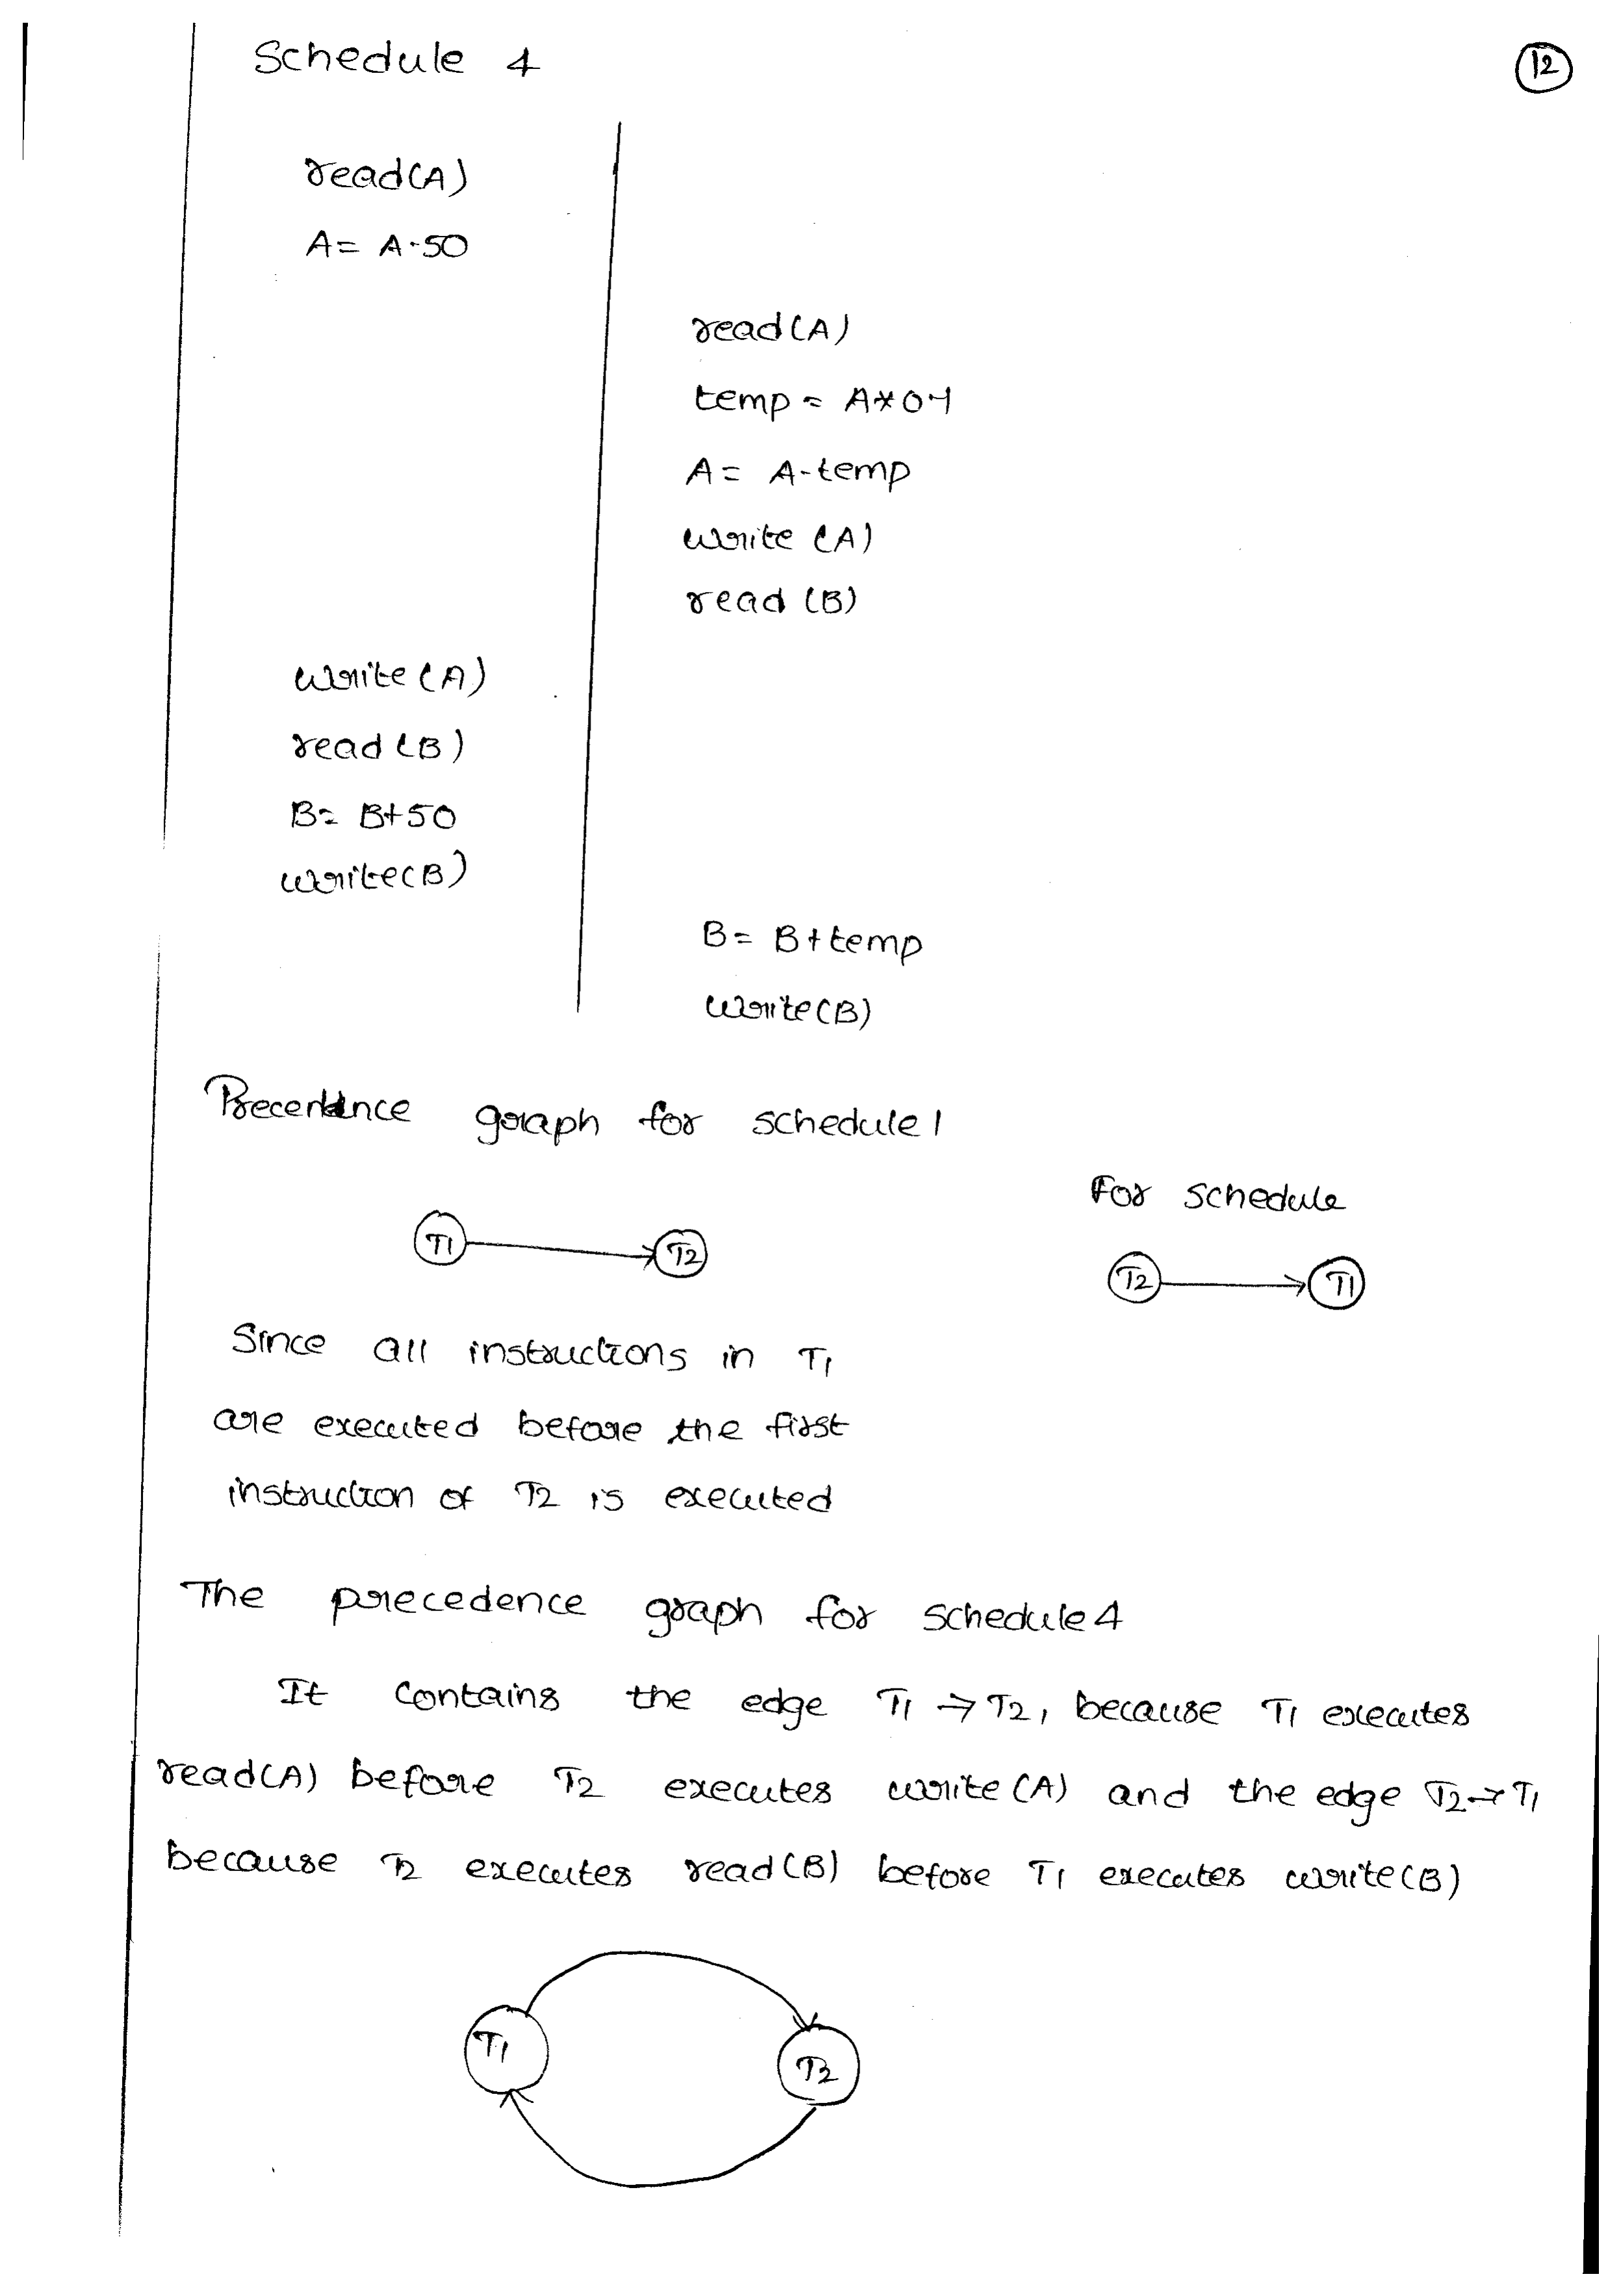 Schedule 4
12
read(A)
A= A-50
read(A)
temp = A*0.1
A= A-temp
write (A)
read (B)
write (A)
read (B)
B= B+50
write(B)
B= B+temp
write(B)
graph for schedule 1
For schedule
T1
T2
T2
T1
Since all instructions in T1
are executed before the first
instruction of T2 is executed
The precedence graph for schedule 4
It contains the edge T1 → T2, because T1 executes
read(A) before T2 executes write (A) and the edge T2→T1
because T2 executes read (B) before T1 executes write(B)
T1
T2